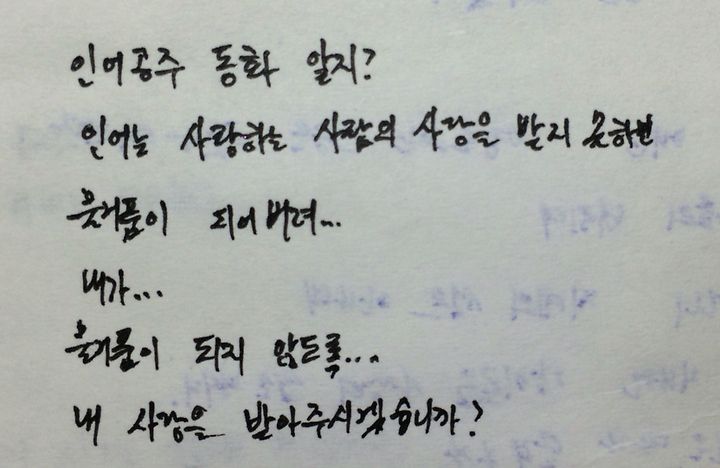 인어공주 동화 알지?
인어는 사랑하는 사람의 사랑을 받지 못하면
물거품이 되어버려...
내가...
물거품이 되지 않도록...
내 사랑을 받아주시겠습니까?